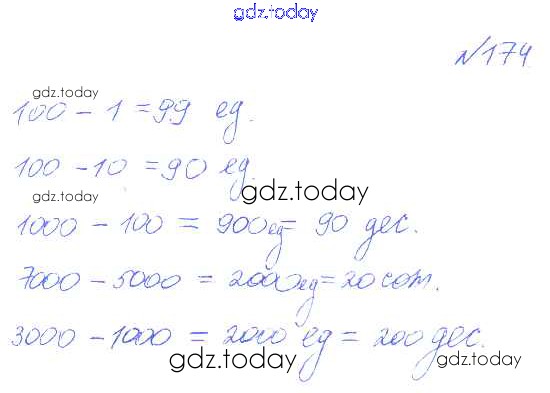 gdz.today
№174
gdz.today
100 - 1 = 99 ед.
100 - 10 = 90 ед.
gdz.today gdz.today
1000 - 100 = 900 ед = 90 дес.
7000 - 5000 = 2000 ед = 20 сот.
3000 - 1000 = 2000 ед = 200 дес.
gdz.today gdz.today